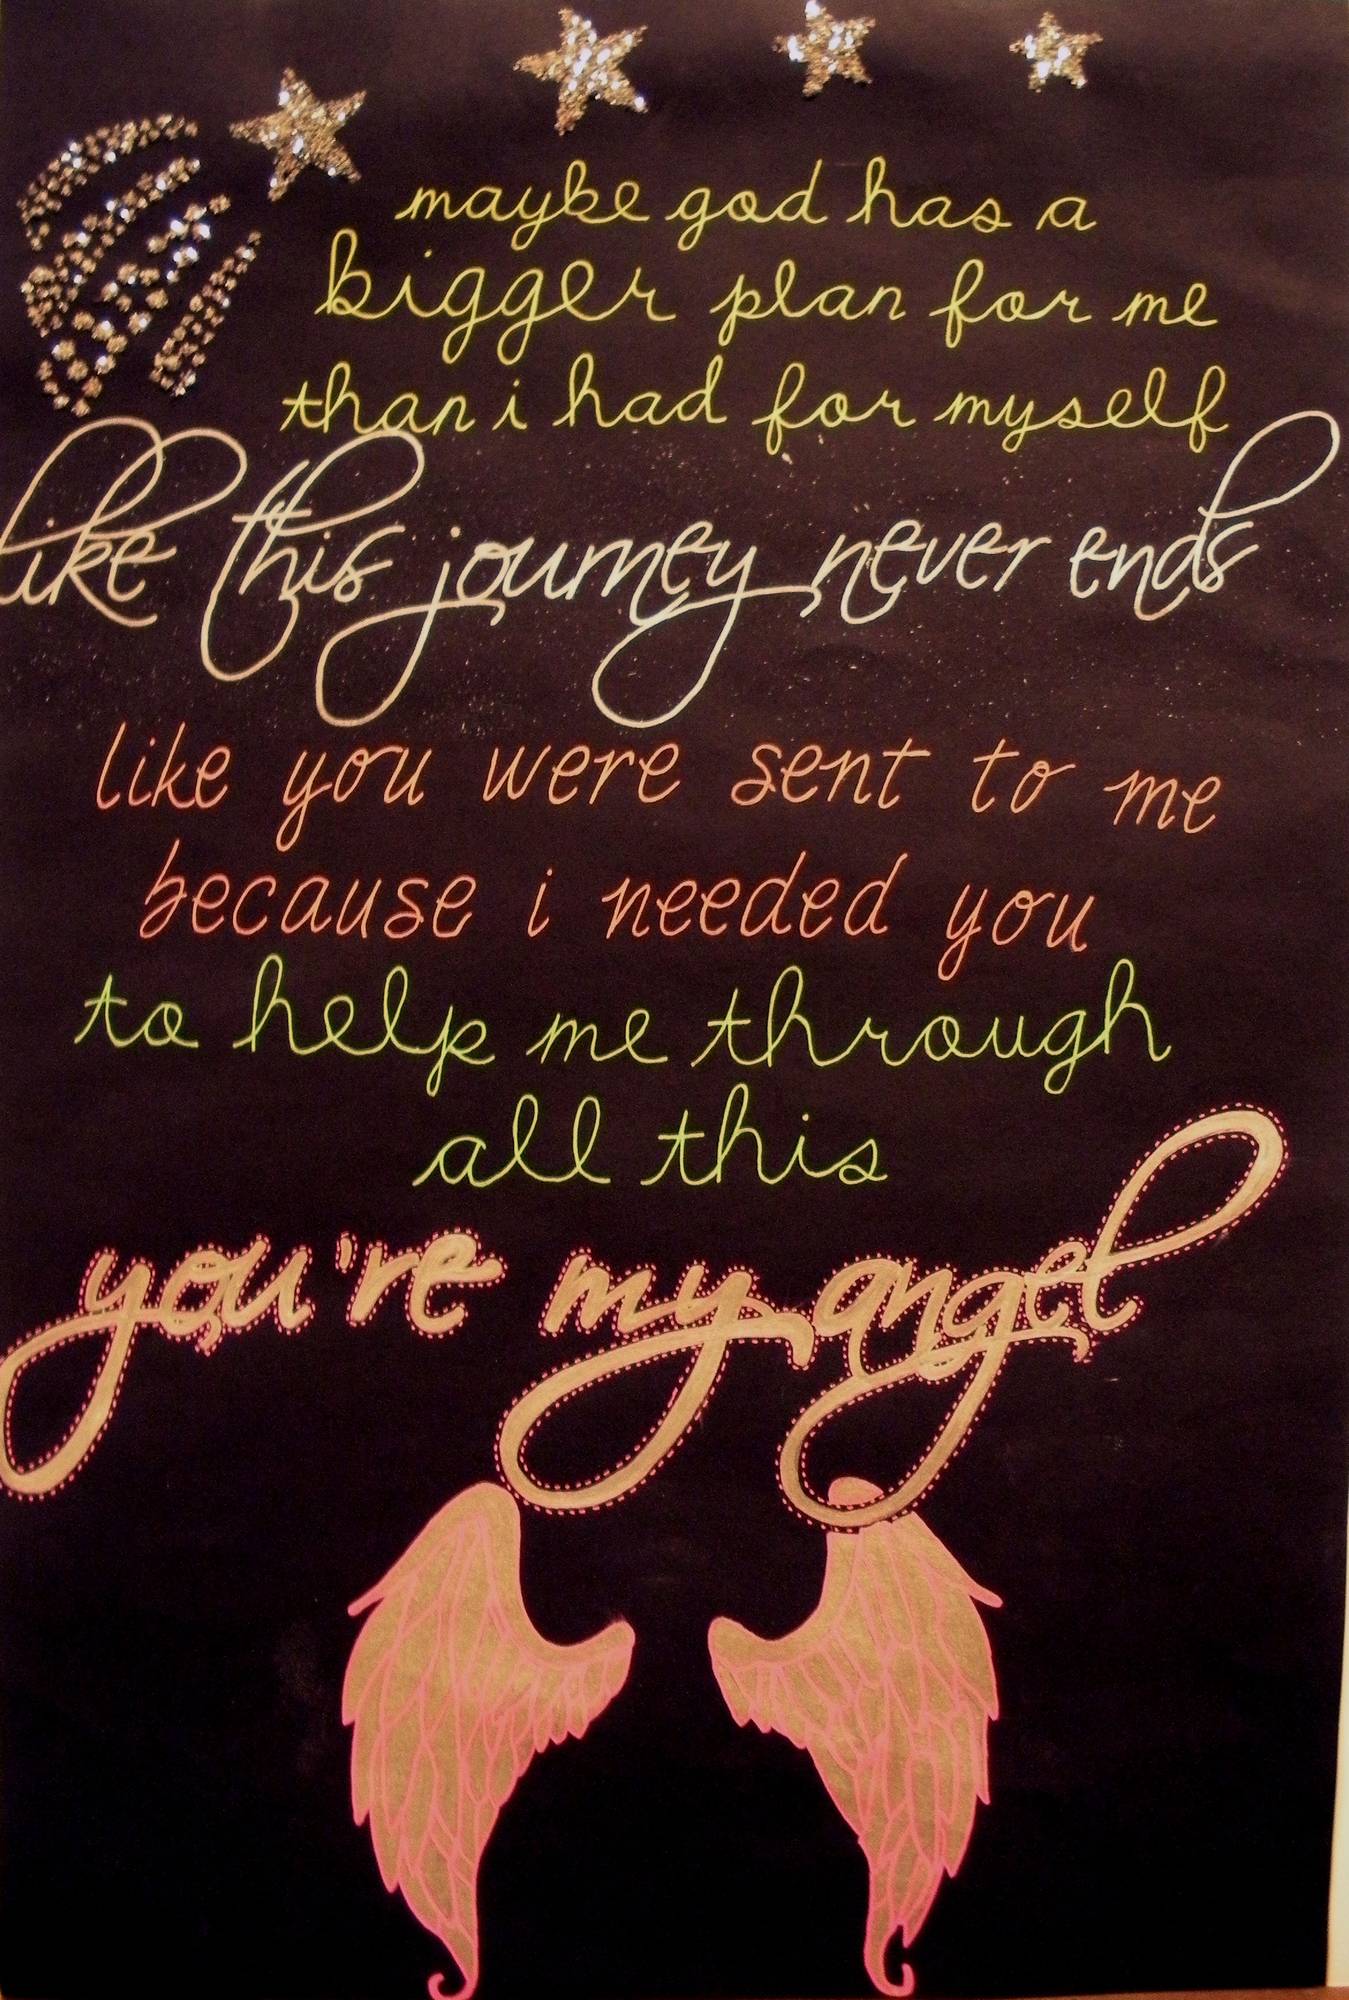 maybe god has a
bigger plan for me
than i had for myself
like this journey never ends
like you were sent to me
because i needed you
to help me through
all this
you're my angel